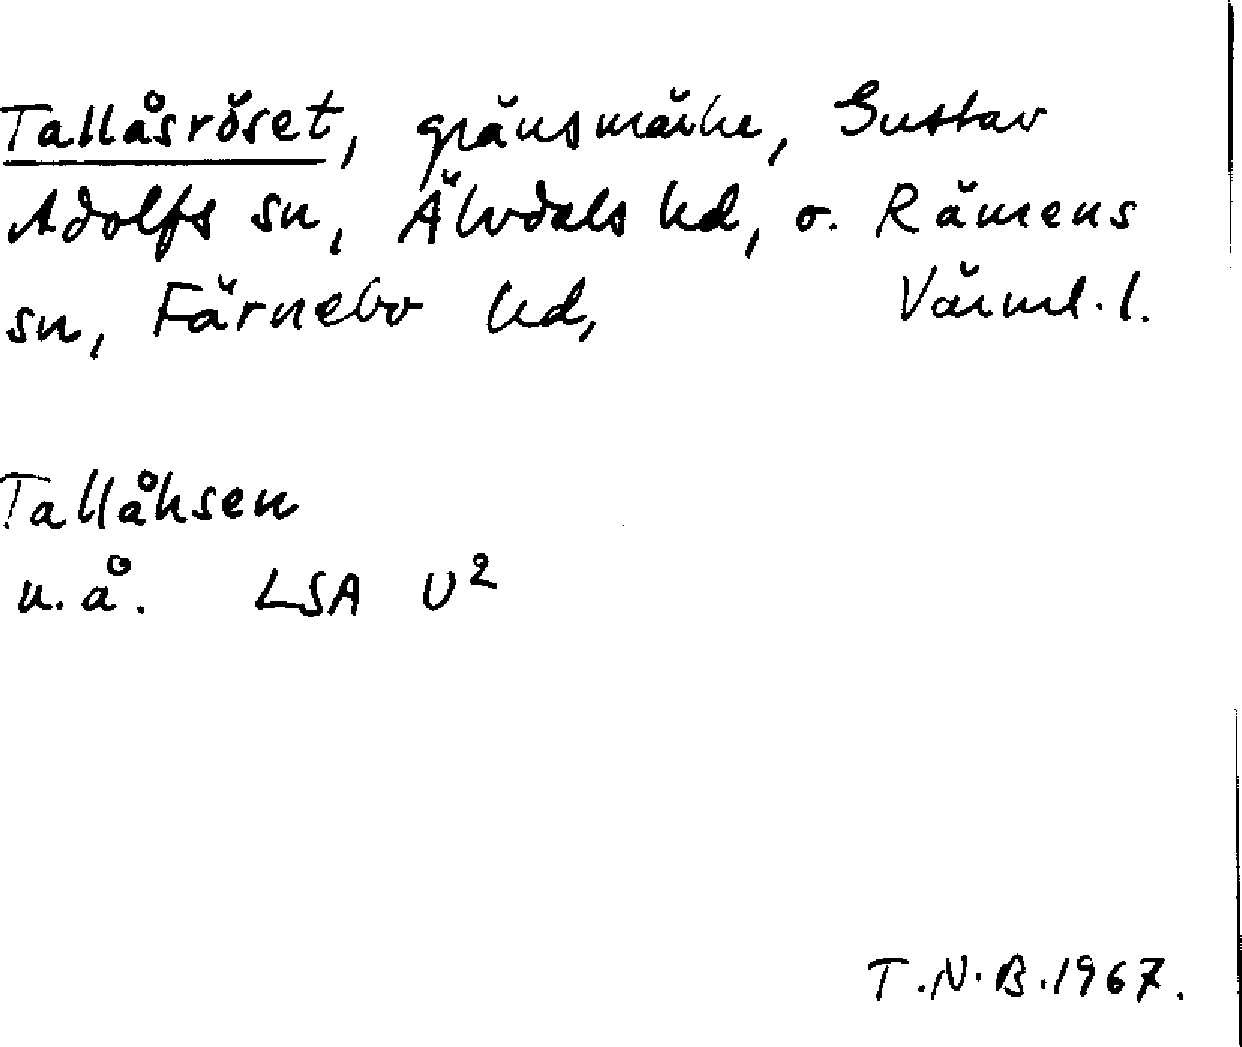 Tallåsröset, gränsmärke, Gustav
Adolfs sn, Älvdals hd, o. Rämens
sn, Färnebo hd, Värml. l.
Tallåhsen
u. å. LSA U²
T.N.B. 1967.